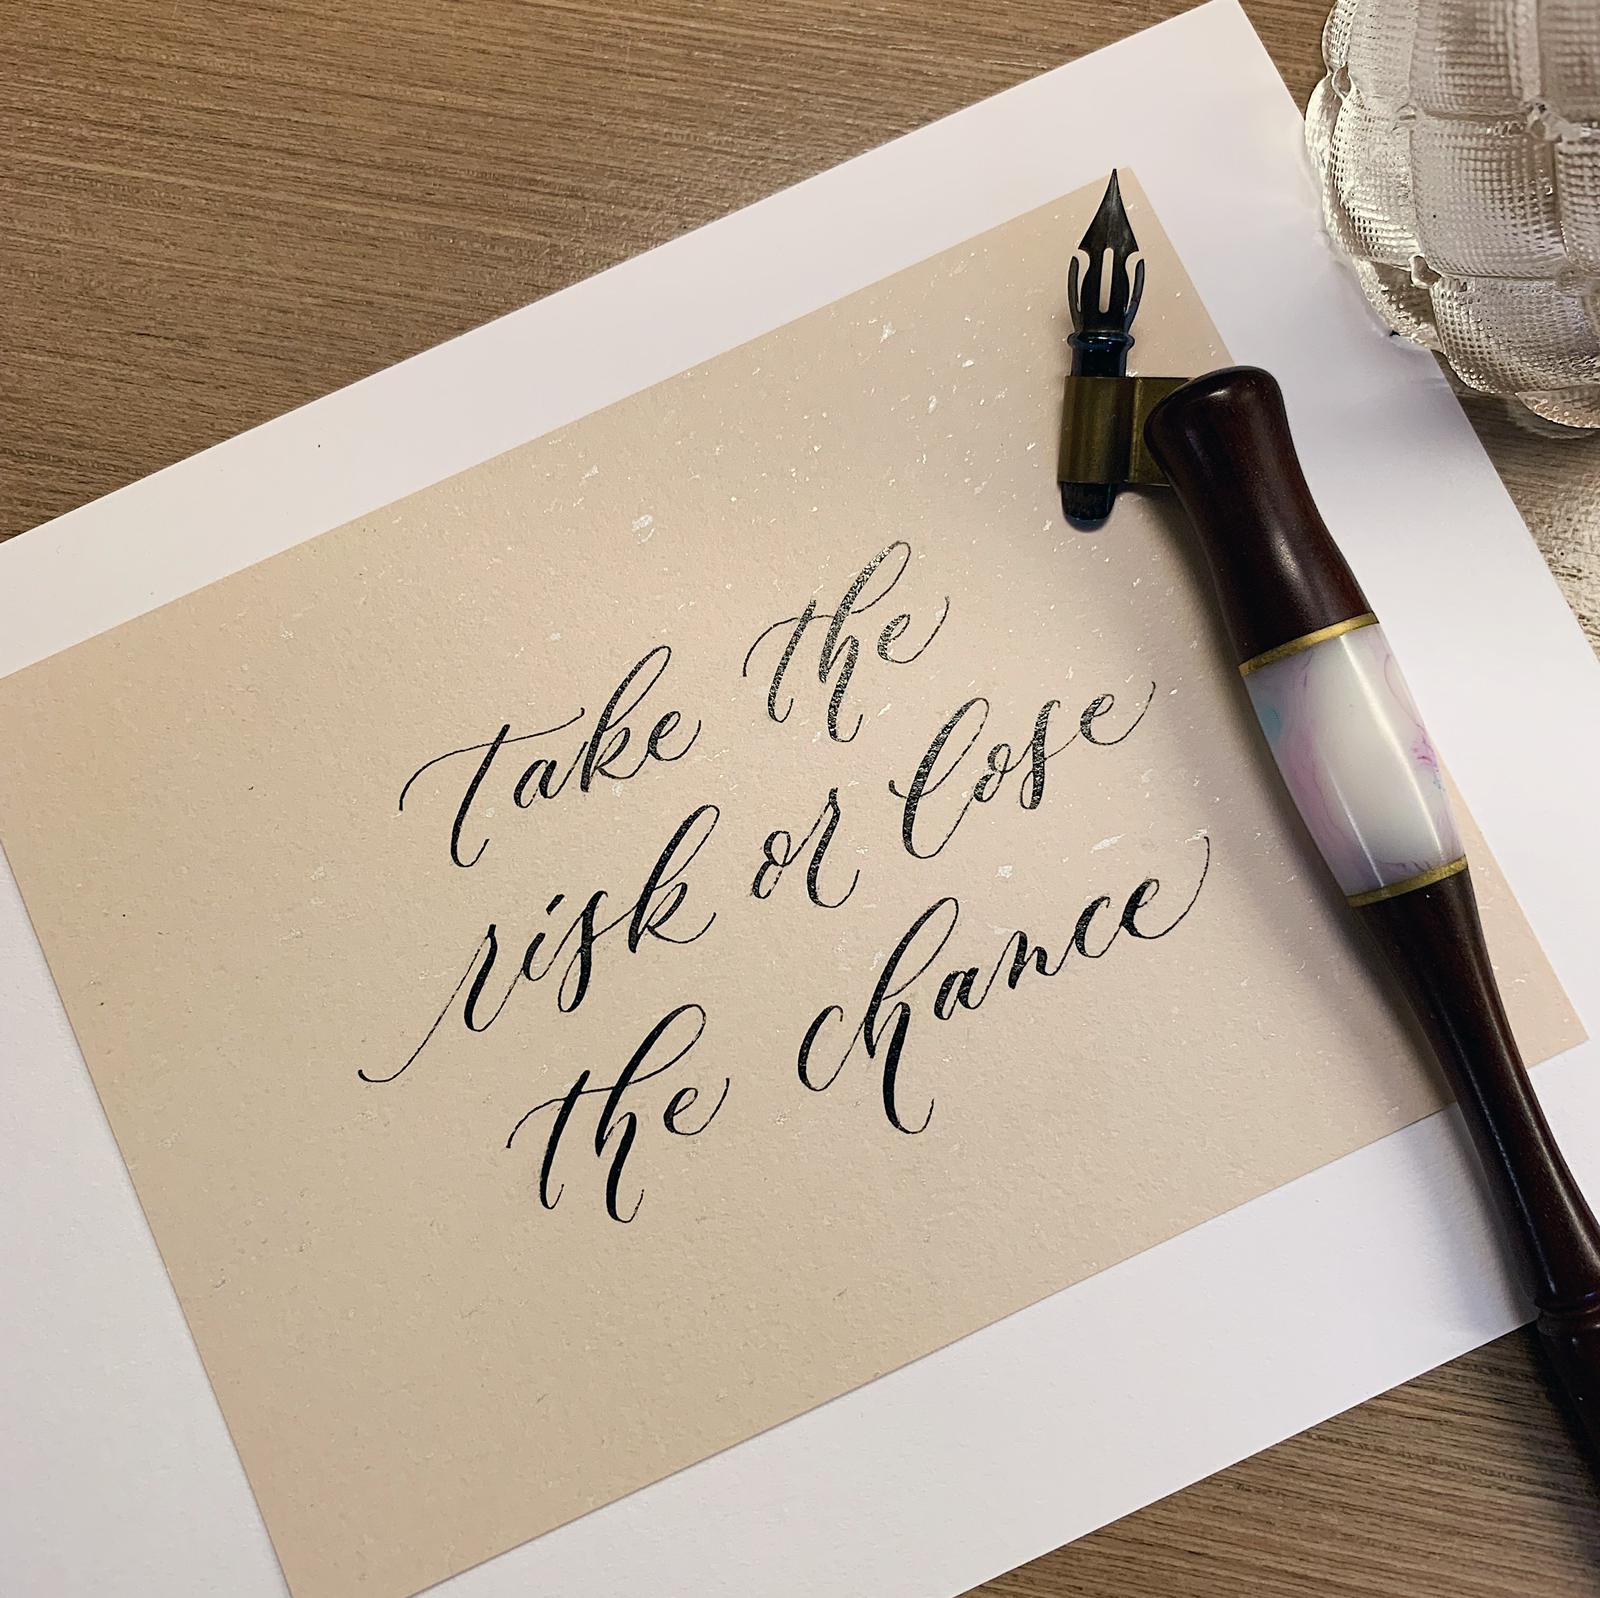 take the
risk or lose
the chance